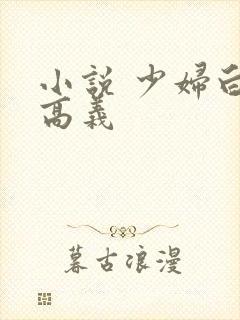 小説 少婦白
高義
暮古浪漫